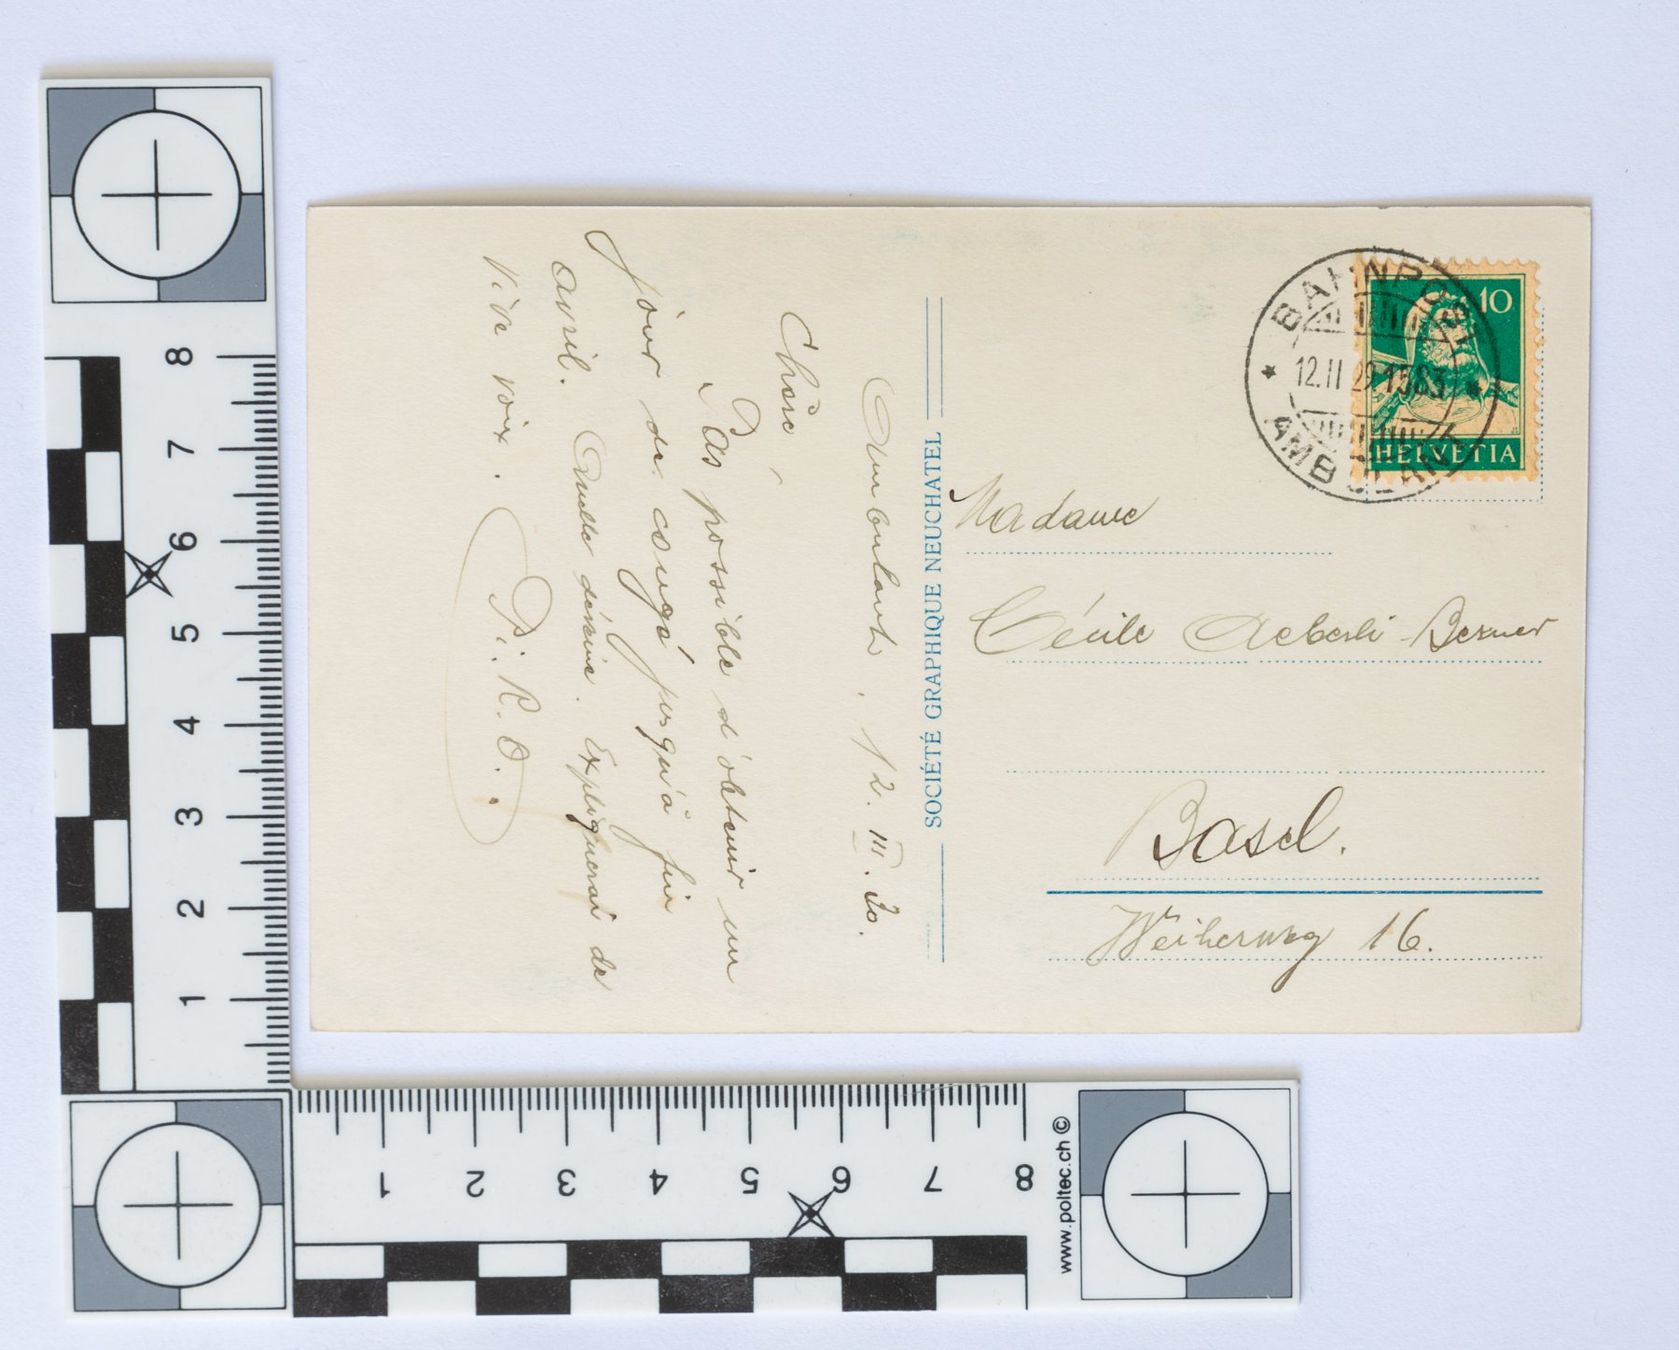 Ambulant, 12. III. 20.
Chéré
Pas possible d'obtenir un
jour de congé jusqu'à fin
avril. Quelle déveine. Expliquerai de
vive voix.
P.R.O.
SOCIÉTÉ GRAPHIQUE NEUCHATEL
BAHNPOST
12.II 29.1563
AMBULANT
10
HELVETIA
Madame
Cécile Aeberli-Besmer
Basel.
Weiherweg 16.
8
7
6
5
4
3
2
1
1
2
3
4
5
6
7
8
www.poltec.ch ©